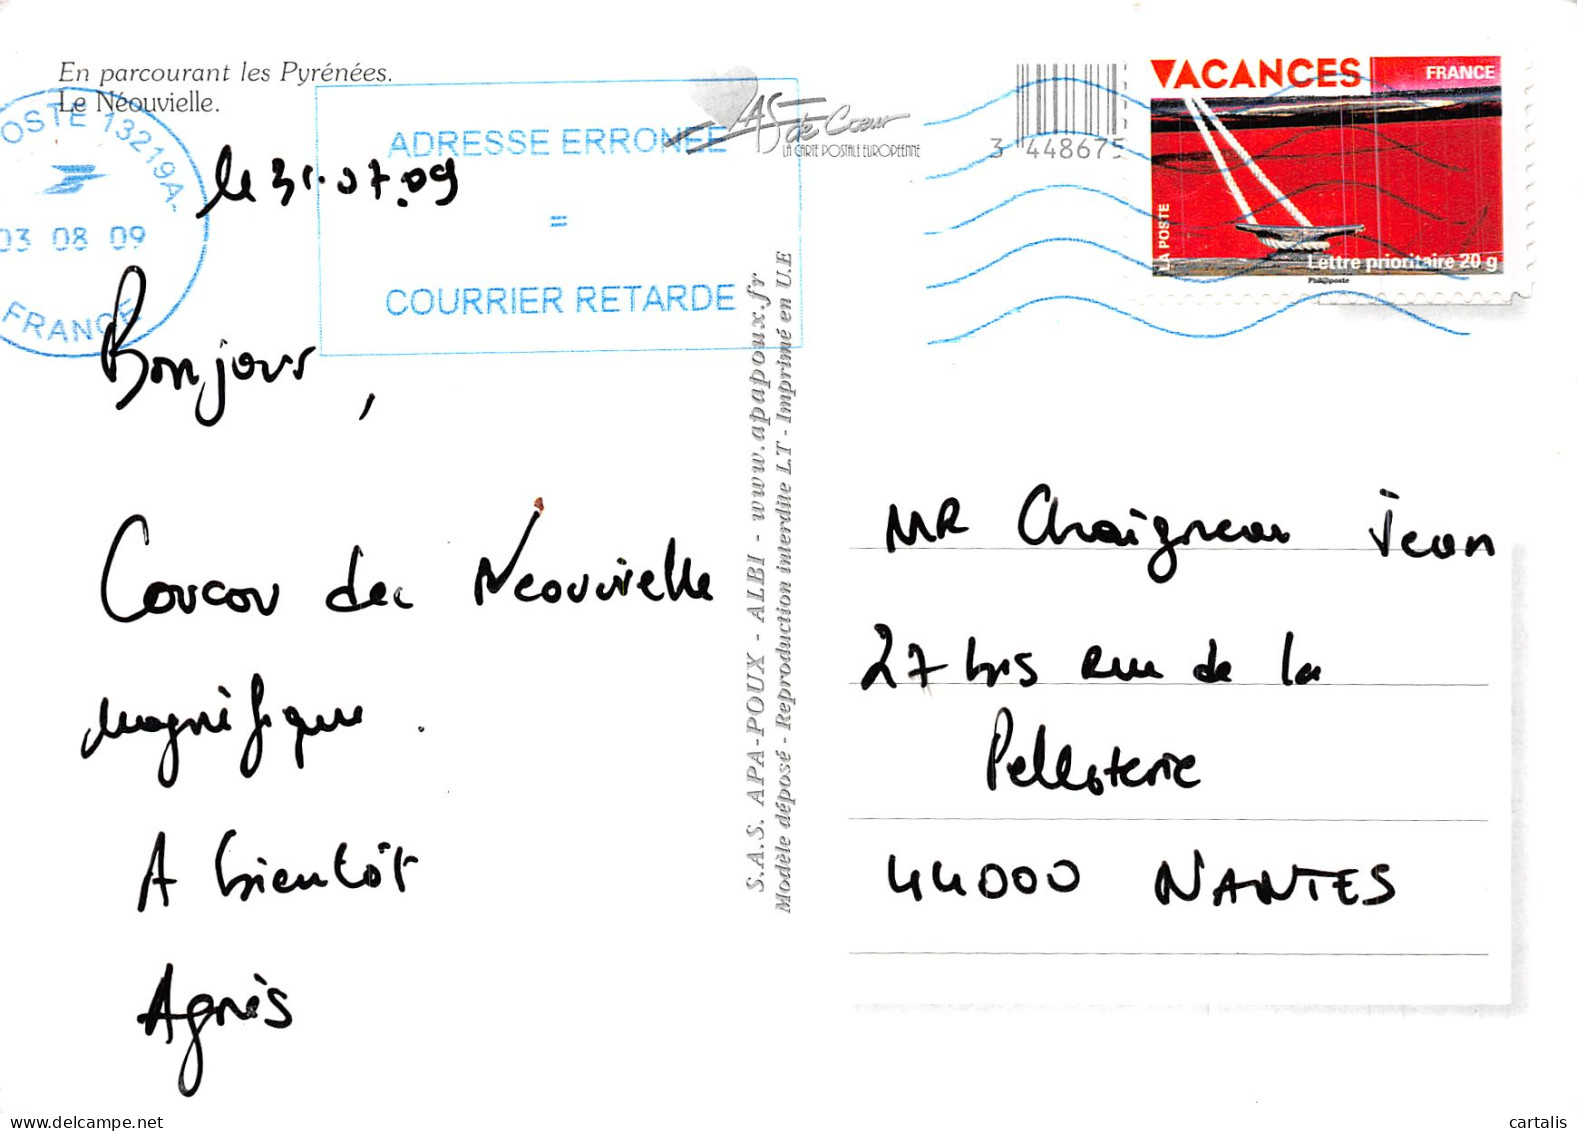 En parcourant les Pyrénées.
Le Néouvielle.
POSTE 13219A-
03 08 09
FRANCE
ADRESSE ERRONEE
=
COURRIER RETARDE
AS de Cœur
LA CARTE POSTALE EUROPEENNE
3 448675
VACANCES
FRANCE
LA POSTE
Lettre prioritaire 20 g
Phil@poste
le 31.07.09
Bonjour,
Coucou du Néouvielle
magnifique.
A bientôt
Agnès
S.A.S. APA-POUX - ALBI - www.apapoux.fr
Modèle déposé - Reproduction interdite LT - Imprimé en U.E
MR Chaigneau Jean
27 bis rue de la
Pelleterie
44000 NANTES
cartalis